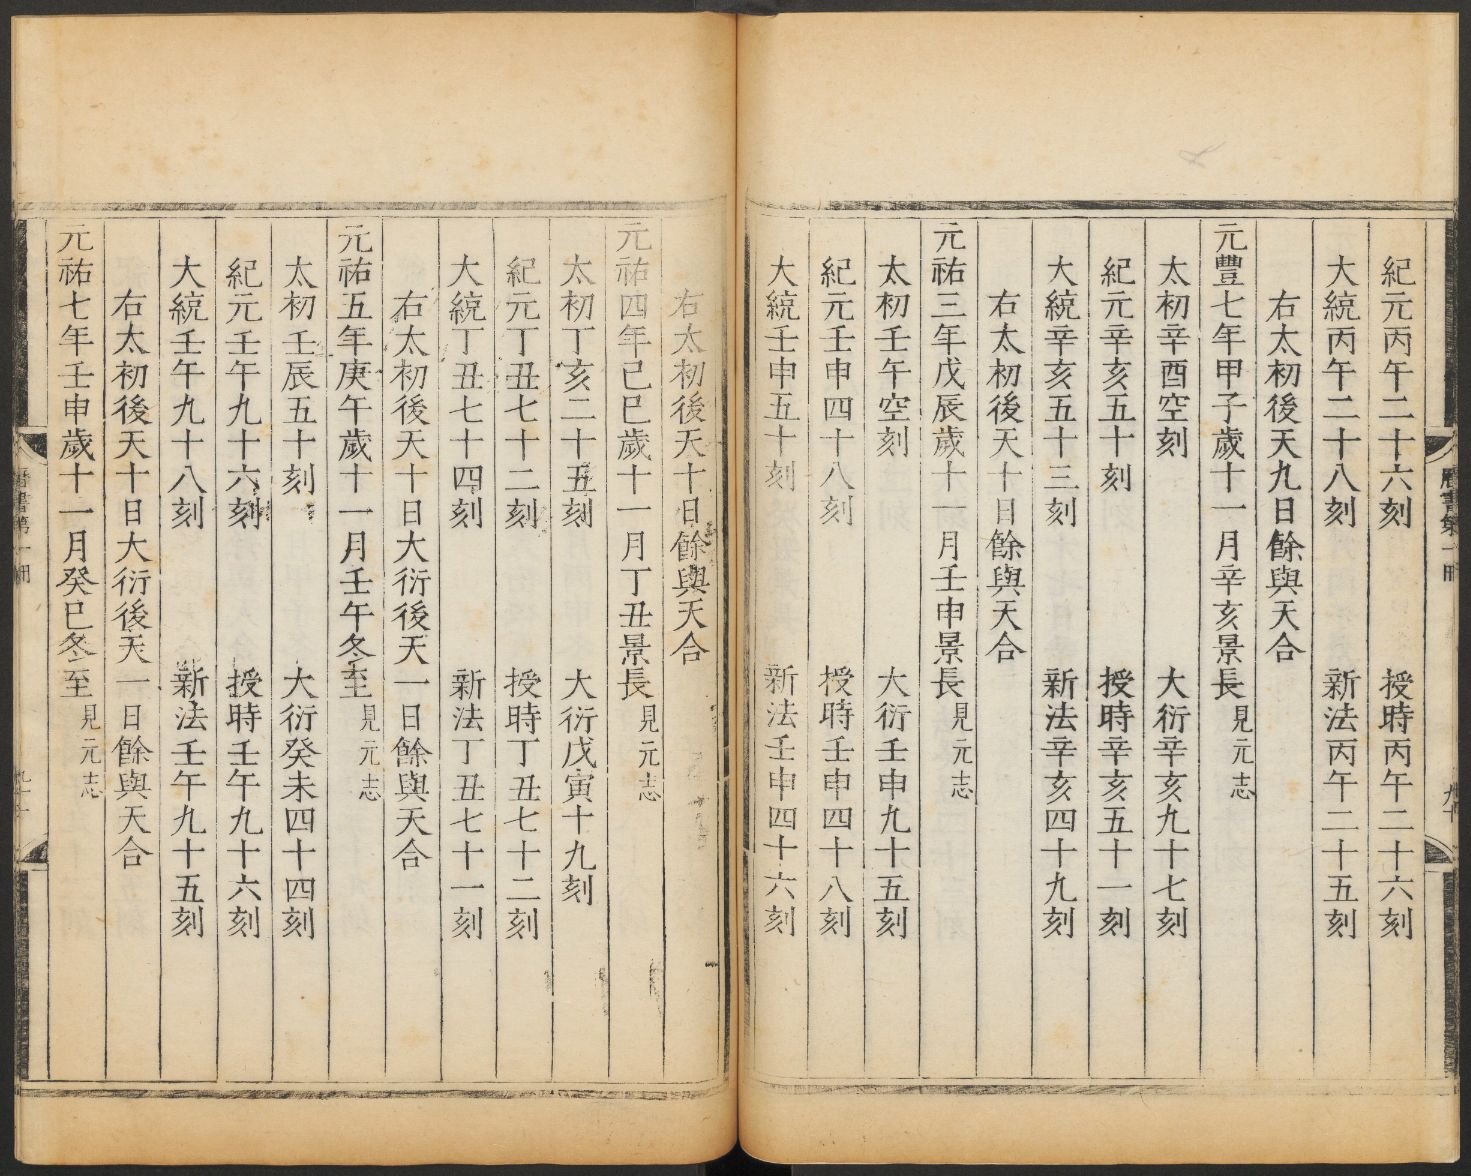 紀元丙午二十六刻　授時丙午二十六刻
大統丙午二十八刻　新法丙午二十五刻
右太初後天九日餘與天合
元豐七年甲子歲十一月辛亥景長見元志
太初辛酉空刻　大衍辛亥九十七刻
紀元辛亥五十刻　授時辛亥五十一刻
大統辛亥五十三刻　新法辛亥四十九刻
右太初後天十日餘與天合
元祐三年戊辰歲十一月壬申景長見元志
太初壬午空刻　大衍壬申九十五刻
紀元壬申四十八刻　授時壬申四十八刻
大統壬申五十刻　新法壬申四十六刻
右太初後天十日餘與天合
元祐四年己巳歲十一月丁丑景長見元志
太初丁亥二十五刻　大衍戊寅十九刻
紀元丁丑七十二刻　授時丁丑七十二刻
大統丁丑七十四刻　新法丁丑七十一刻
右太初後天十日大衍後天一日餘與天合
元祐五年庚午歲十一月壬午冬至見元志
太初壬辰五十刻　大衍癸未四十四刻
紀元壬午九十六刻　授時壬午九十六刻
大統壬午九十八刻　新法壬午九十五刻
右太初後天十日大衍後天一日餘與天合
元祐七年壬申歲十一月癸巳冬至見元志
曆書第一冊